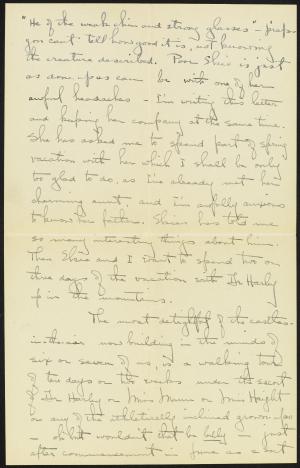 "He of the weak chin and strong glasses" - perhaps
you can't tell how good it is, not knowing
the creature described. Poor Elsie is just
as done-up as can be with one of her
awful headaches - I'm writing this letter
and keeping her company at the same time.
She has asked me to spend part of spring
vacation with her which I shall be only
too glad to do, as I've already met her
charming aunt and I'm awfully anxious
to know her father. Elsie has told me
so many interesting things about him.
Then Elsie and I want to spend two or
three days of the vacation with Dr Harley
up in the mountains.
The most delightful of the castles-
in-the-air now building in the minds of
six or seven of us, is a walking tour
of ten days or two weeks under the escort
of Dr Harley or Miss Munn or Miss Haight
or any of the athletically inclined grown-ups
- oh but wouldn't that be bully - just
after commencement in June as a sort